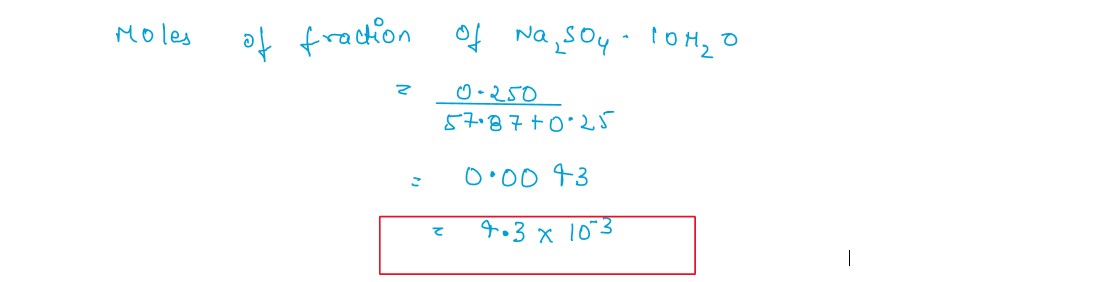 Moles of fraction of Na₂SO₄ · 10H₂O
= 0.250
57.87 + 0.25
= 0.0043
= 4.3 × 10⁻³